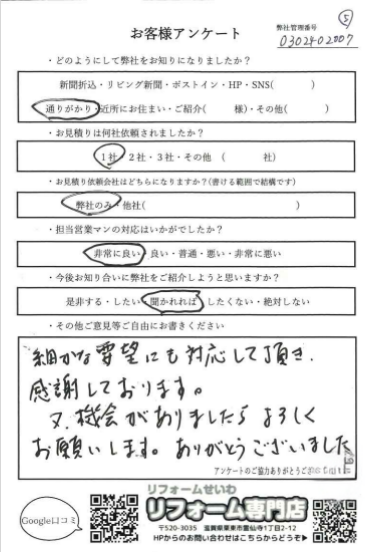 ⑤
お客様アンケート
弊社管理番号
0302402007
・どのようにして弊社をお知りになりましたか？
新聞折込・リビング新聞・ポストイン・HP・SNS(　　　)
通りがかり・近所にお住まい・ご紹介(　　　様)・その他(　　　)
・お見積りは何社依頼されましたか？
1社・2社・3社・その他　(　　　社)
・お見積り依頼会社はどちらになりますか？(書ける範囲で結構です)
弊社のみ・他社(　　　)
・担当営業マンの対応はいかがでしたか？
非常に良い・良い・普通・悪い・非常に悪い
・今後お知り合いに弊社をご紹介しようと思いますか？
是非する・したい・聞かれれば・したくない・絶対しない
・その他ご意見等ご自由にお書きください
細かな要望にも対応して頂き、
感謝しております。
又、機会がありましたら よろしく
お願いします。ありがとうございました
アンケートのご協力ありがとうございました
Google口コミ
リフォームせいわ
リフォーム専門店
〒520-3035 滋賀県栗東市霊仙寺1丁目2-12
HPからのお問い合わせはこちらからどうぞ▶